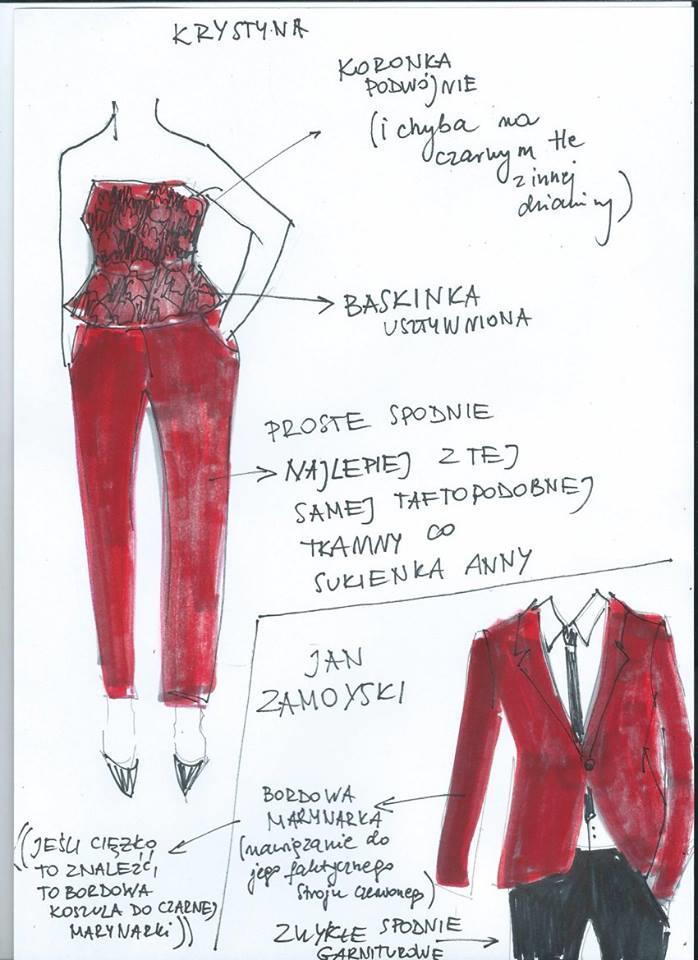 KRYSTYNA
KORONKA
PODWÓJNIE
(i chyba na
czarnym tle
z innej
dzianiny)
BASKINKA
USZTYWNIONA
PROSTE SPODNIE
NAJLEPIEJ Z TEJ
SAMEJ TAFTOPODOBNEJ
TKANINY CO
SUKIENKA ANNY
JAN
ZAMOYSKI
BORDOWA
MARYNARKA
(nawiązanie do
jego faktycznego
stroju czerwonego)
((JEŚLI CIĘŻKO
TO ZNALEŹĆ,
TO BORDOWA
KOSZULA DO CZARNEJ
MARYNARKI))
ZWYKŁE SPODNIE
GARNITUROWE